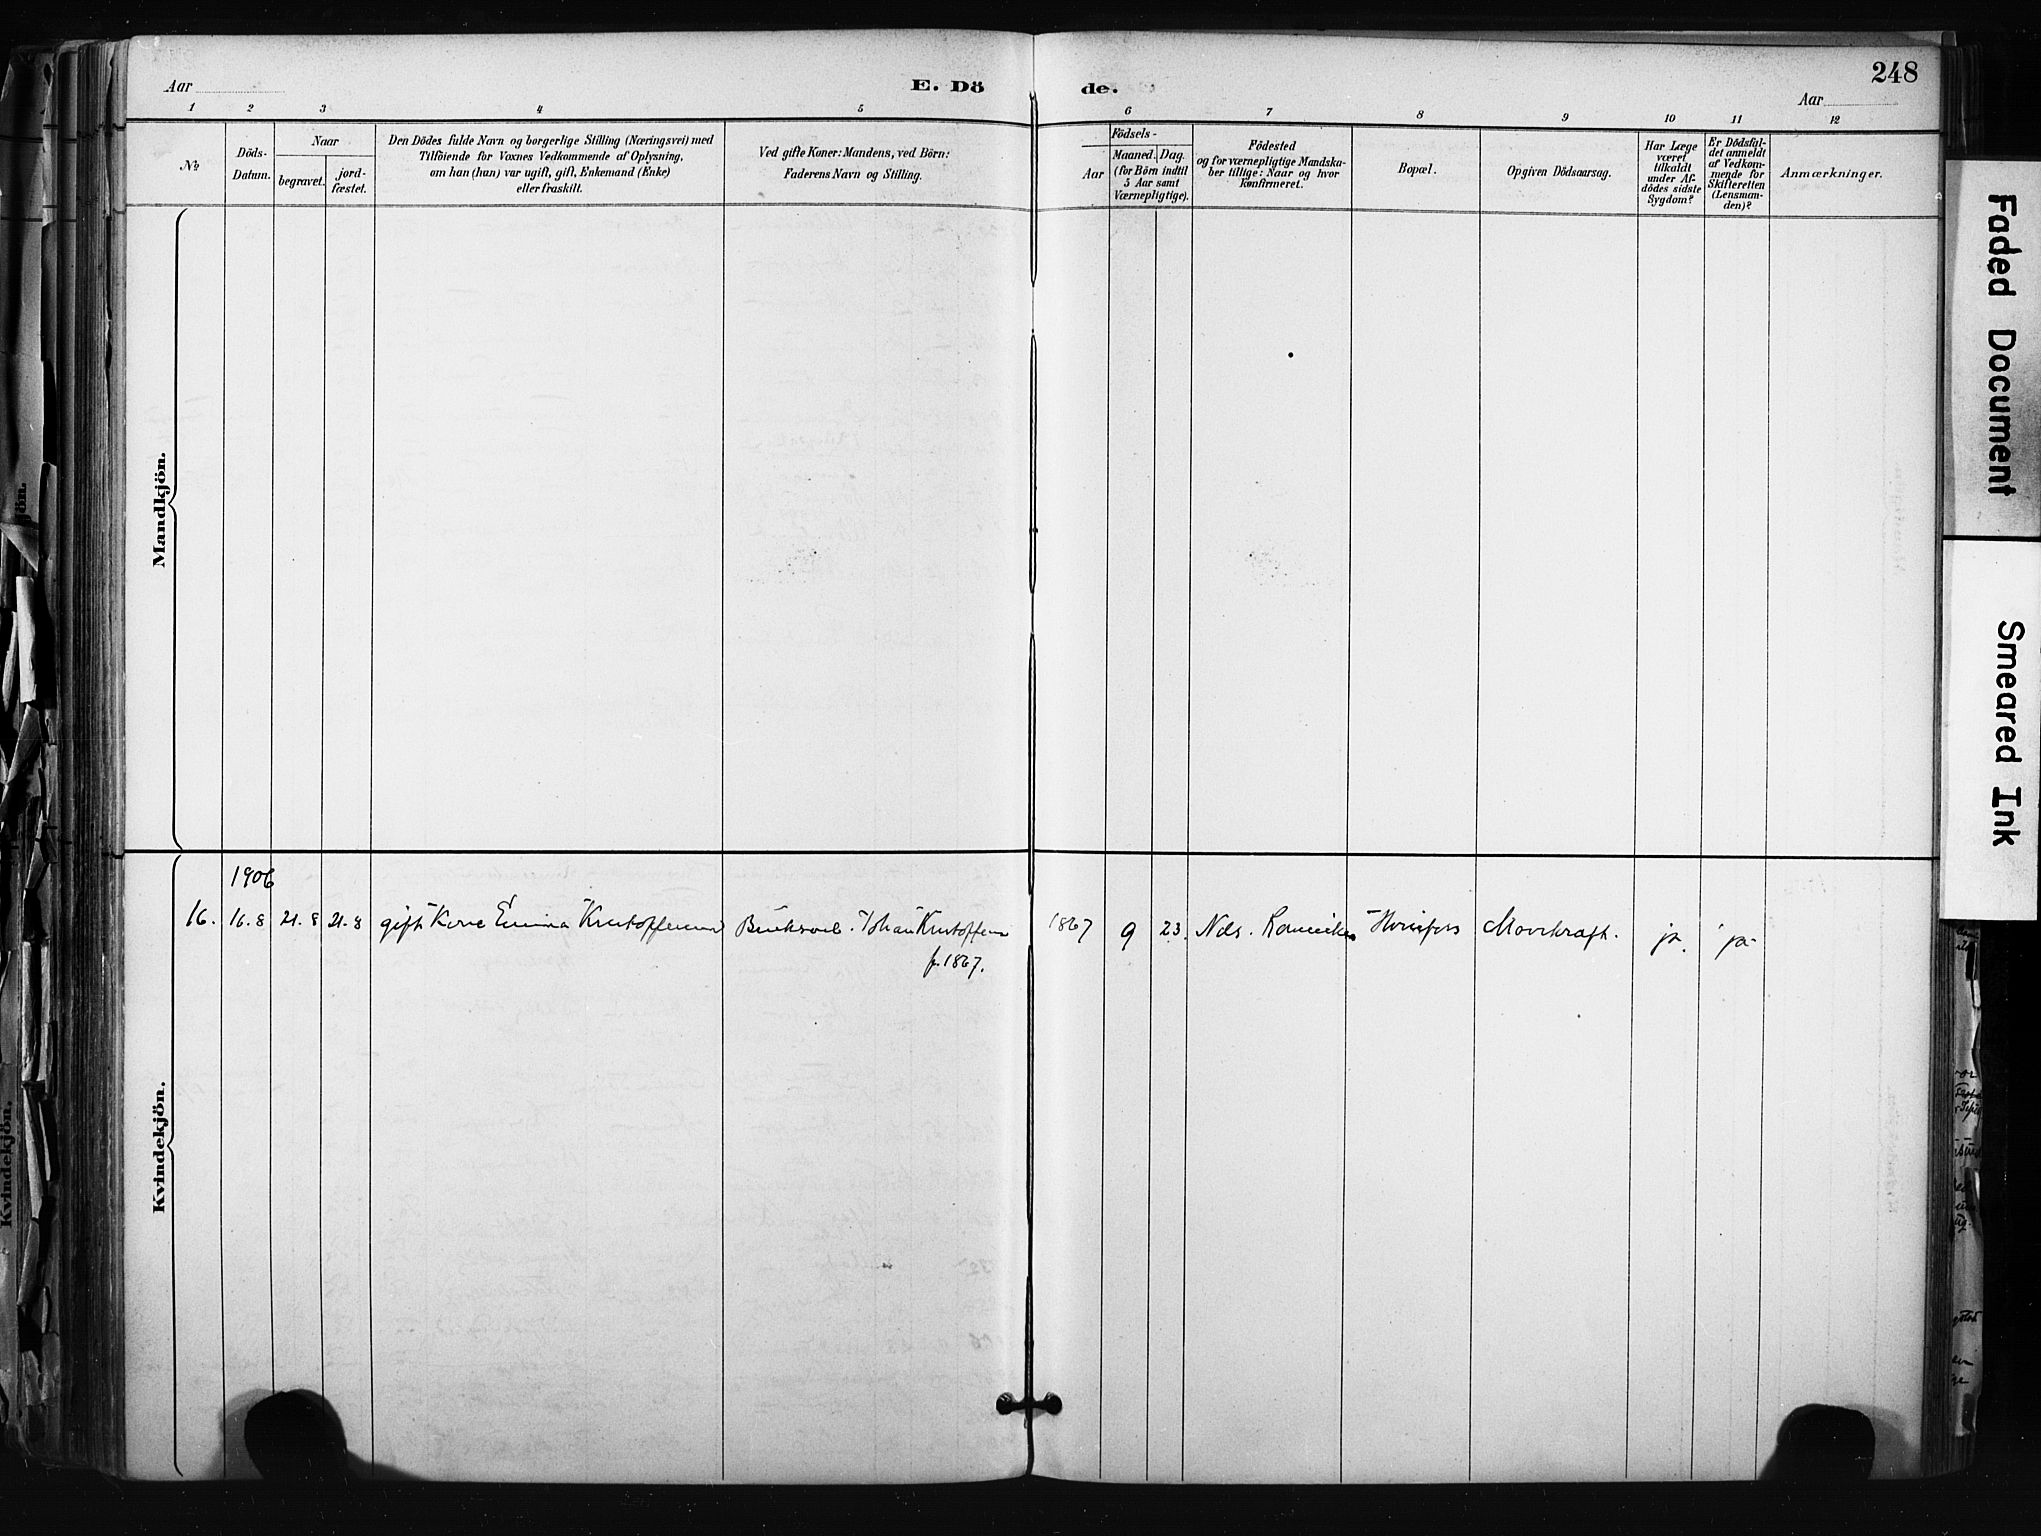 248
Aar
E. Dö de.
Aar
1 2 3 4 5 6 7 8 9 10 11 12
№
Döds-
Datum.
Naar
begravet.
jord-
fæstet.
Den Dödes fulde Navn og borgerlige Stilling (Næringsvei) med
Tilföiende for Voxnes Vedkommende af Oplysning,
om han (hun) var ugift, gift, Enkemand (Enke)
eller fraskilt.
Ved gifte Koner: Mandens, ved Börn:
Faderens Navn og Stilling.
Födsels-
Aar
Maaned. Dag.
(for Börn indtil
5 Aar samt
Værnepligtige).
Födested
og for værnepligtige Mandska-
ber tillige: Naar og hvor
konfirmeret.
Bopæl.
Opgiven Dödsaarsag.
Har Læge
været
tilkaldt
under Af-
dödes sidste
Sygdom?
Er Dödsfal-
det anmeldt
af Vedkom-
mende for
Skifteretten
(Lensman-
den)?
Anmærkninger.
Mandkjön.
Kvindekjön.
1906
16. 16.8 21.8 21.8 gift Kone Emma Kristoffersen Johan Kristoffersen 1867 9 23. Mavekræft. ja. ja
f. 1867.
Kvindekjön.
Faded Document
Smeared Ink